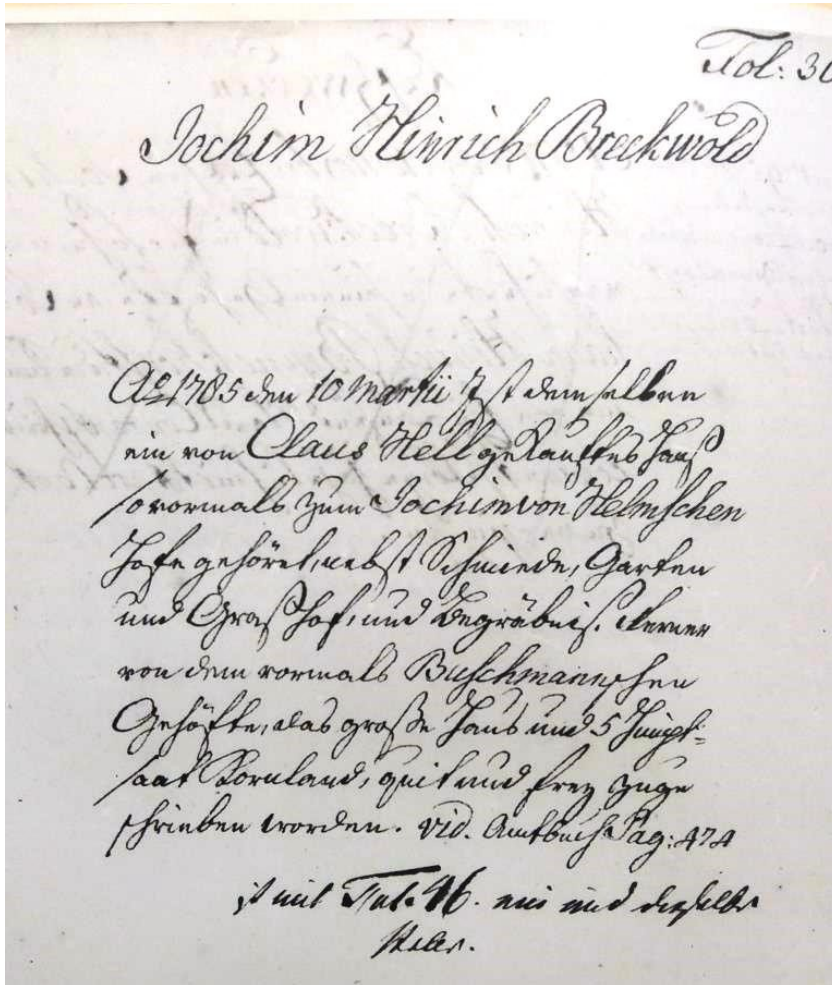 Fol: 30
Jochim Hinrich Breckwold
Ao 1785 den 10 Martii Ist demselben
ein von Claus Hell gekauftes Hauß
so vormals zum Jochim von Helmschen
Hofe gehöret, nebst Schmiede, Garten
und Graßhof, und Begräbniß. Ferner
von dem vormals Buschmannschen
Gehöfte, das große Haus und 5 Himpt=
saat Kornland, quit und frey zuge
schrieben worden. vid. Amtbuch Pag: 474
ist mit Fol. 46. ein und dieselbe
Stelle.